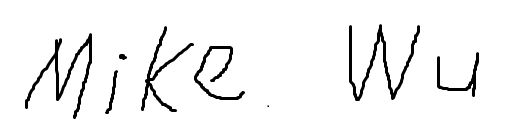 Mike Wu